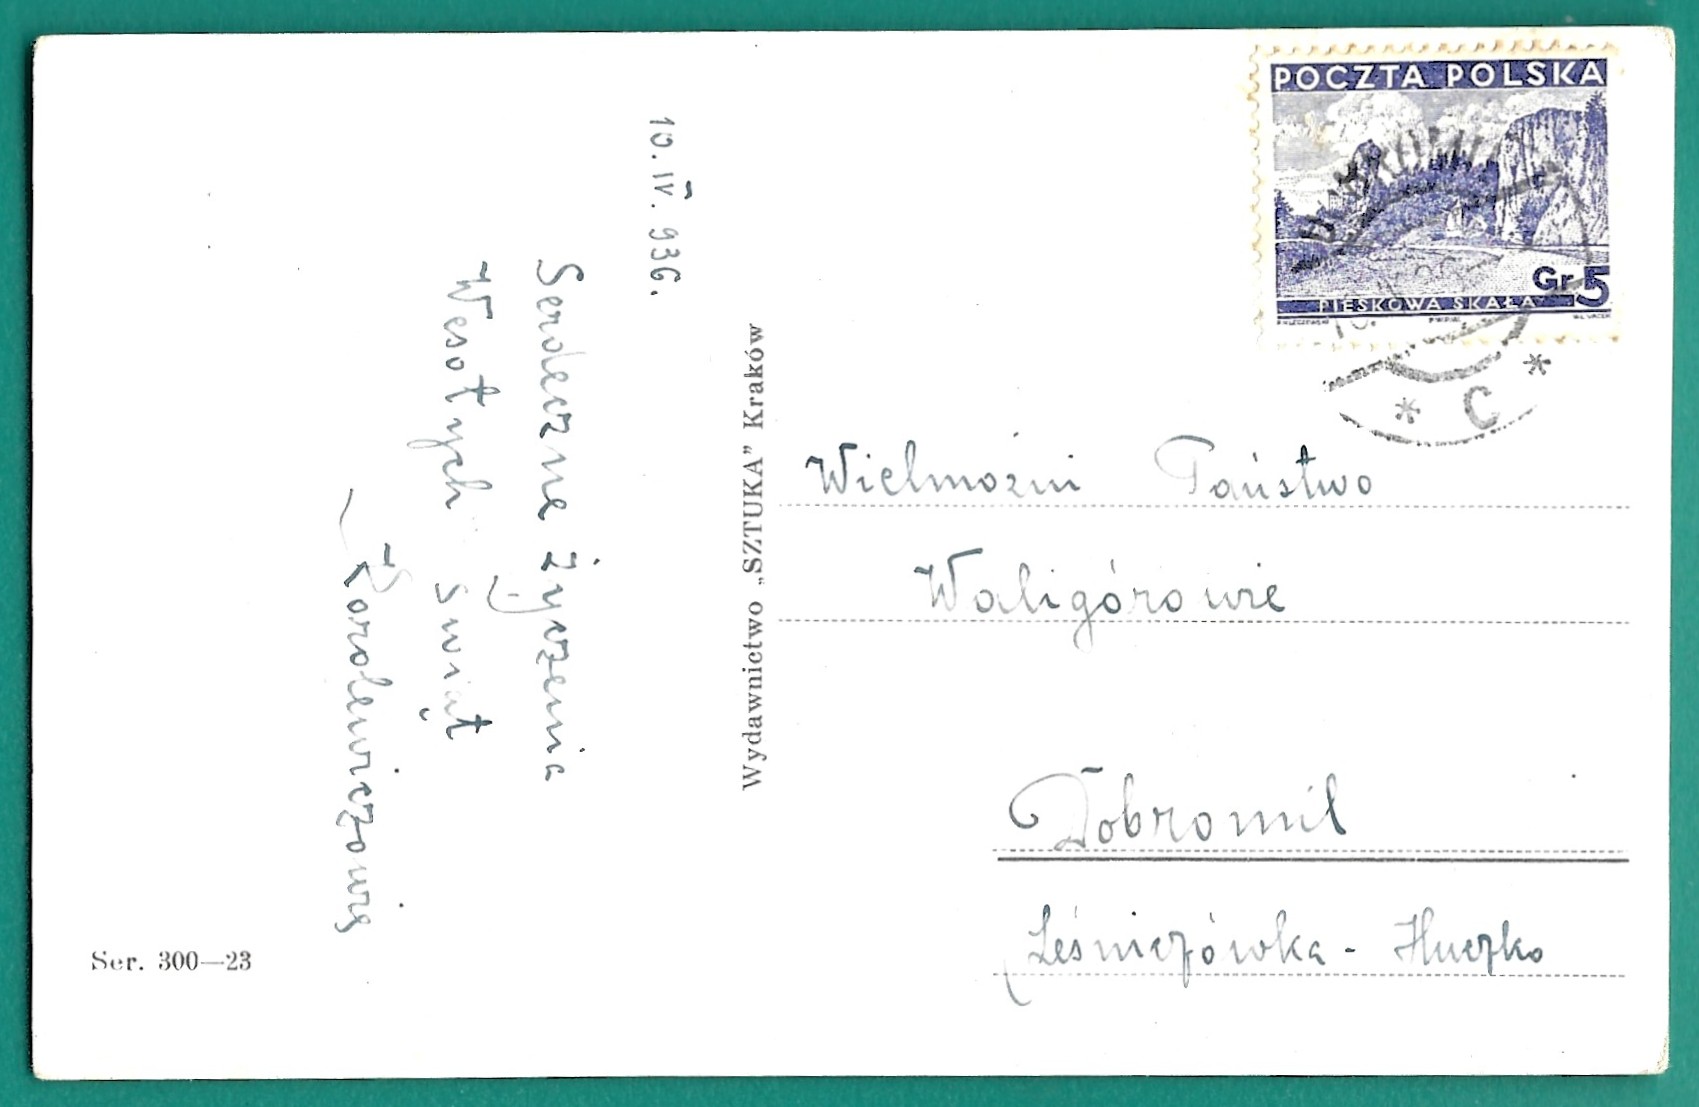 10. IV. 936.
Serdeczne życzenia
Wesołych Świąt
Karolewiczowie
Wydawnictwo „SZTUKA” Kraków
Ser. 300—23
POCZTA POLSKA
Gr 5
PIESKOWA SKAŁA
* C *
Wielmożni Państwo
Waligórowie
Dobromil
Leśniczówka - Huczko